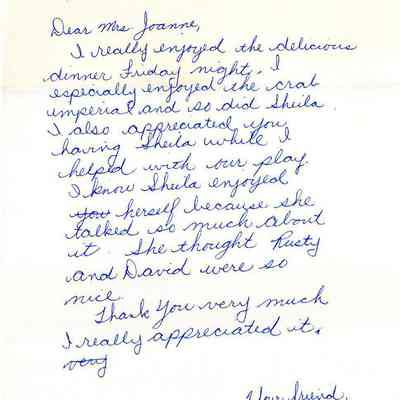 Dear Mrs Joanne,
I really enjoyed the delicious
dinner Friday night. I
especially enjoyed the crab
imperial and so did Sheila.
I also appreciated you
having Sheila while I
helped with our play.
I know Sheila enjoyed
you herself because she
talked so much about
it. She thought Rusty
and David were so
nice.
Thank You very much
I really appreciated it.
very
Your friend,